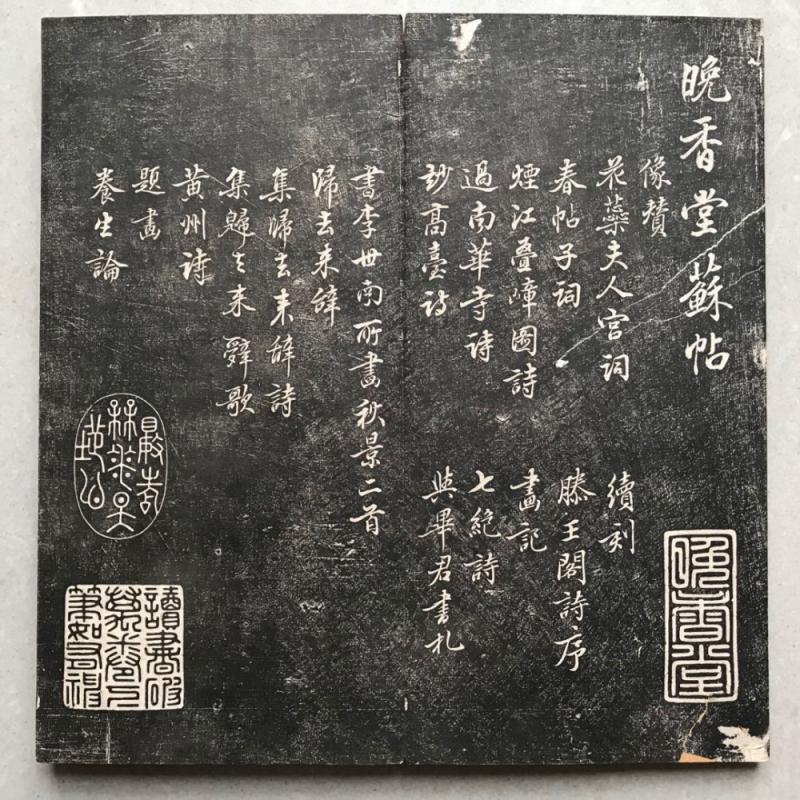 晚香堂蘇帖
像贊
花蘂夫人宮詞
春帖子詞
煙江疊嶂圖詩
過南華寺詩
妙高臺詩
書李世南所畫秋景二首
歸去来辭
集歸去来辭詩
集歸去来辭歌
黃州詩
題畫
養生論
續刻
滕王閣詩序
畫記
七絕詩
與畢君書札
晚香堂
讀書破
萬卷下
筆如有神